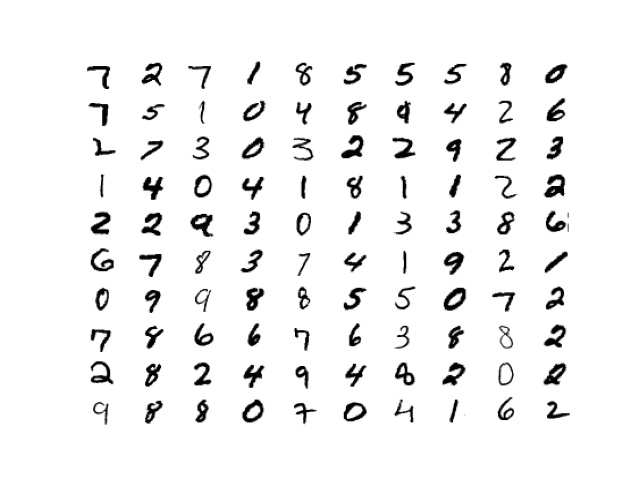 7 2 7 1 8 5 5 5 8 0
7 5 1 0 4 8 9 4 2 6
2 7 3 0 3 2 2 9 2 3
1 4 0 4 1 8 1 1 2 2
2 2 9 3 0 1 3 3 8 6
6 7 8 3 7 4 1 9 2 1
0 9 9 8 8 5 5 0 7 2
7 8 6 6 7 6 3 8 8 2
2 8 2 4 9 4 8 2 0 2
9 8 8 0 7 0 4 1 6 2